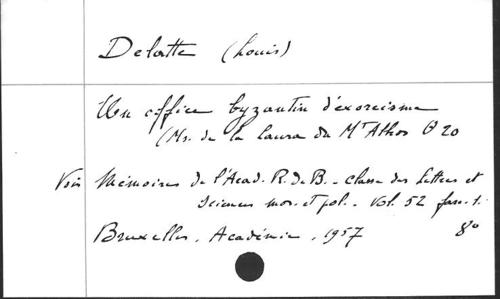 Delatte (Louis)
Un office byzantin d'exorcisme
(Ms. de la Laura du Mt Athos θ 20
Voir Mémoires de l'Acad. R. de B. - Classe des Lettres et
Sciences mor. et pol. - Vol. 52 fasc. 1.
Bruxelles, Académie, 1957 8°